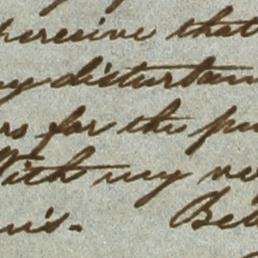 perceive that
ny disturban
rs for the pu
With my ve
is.  Bel